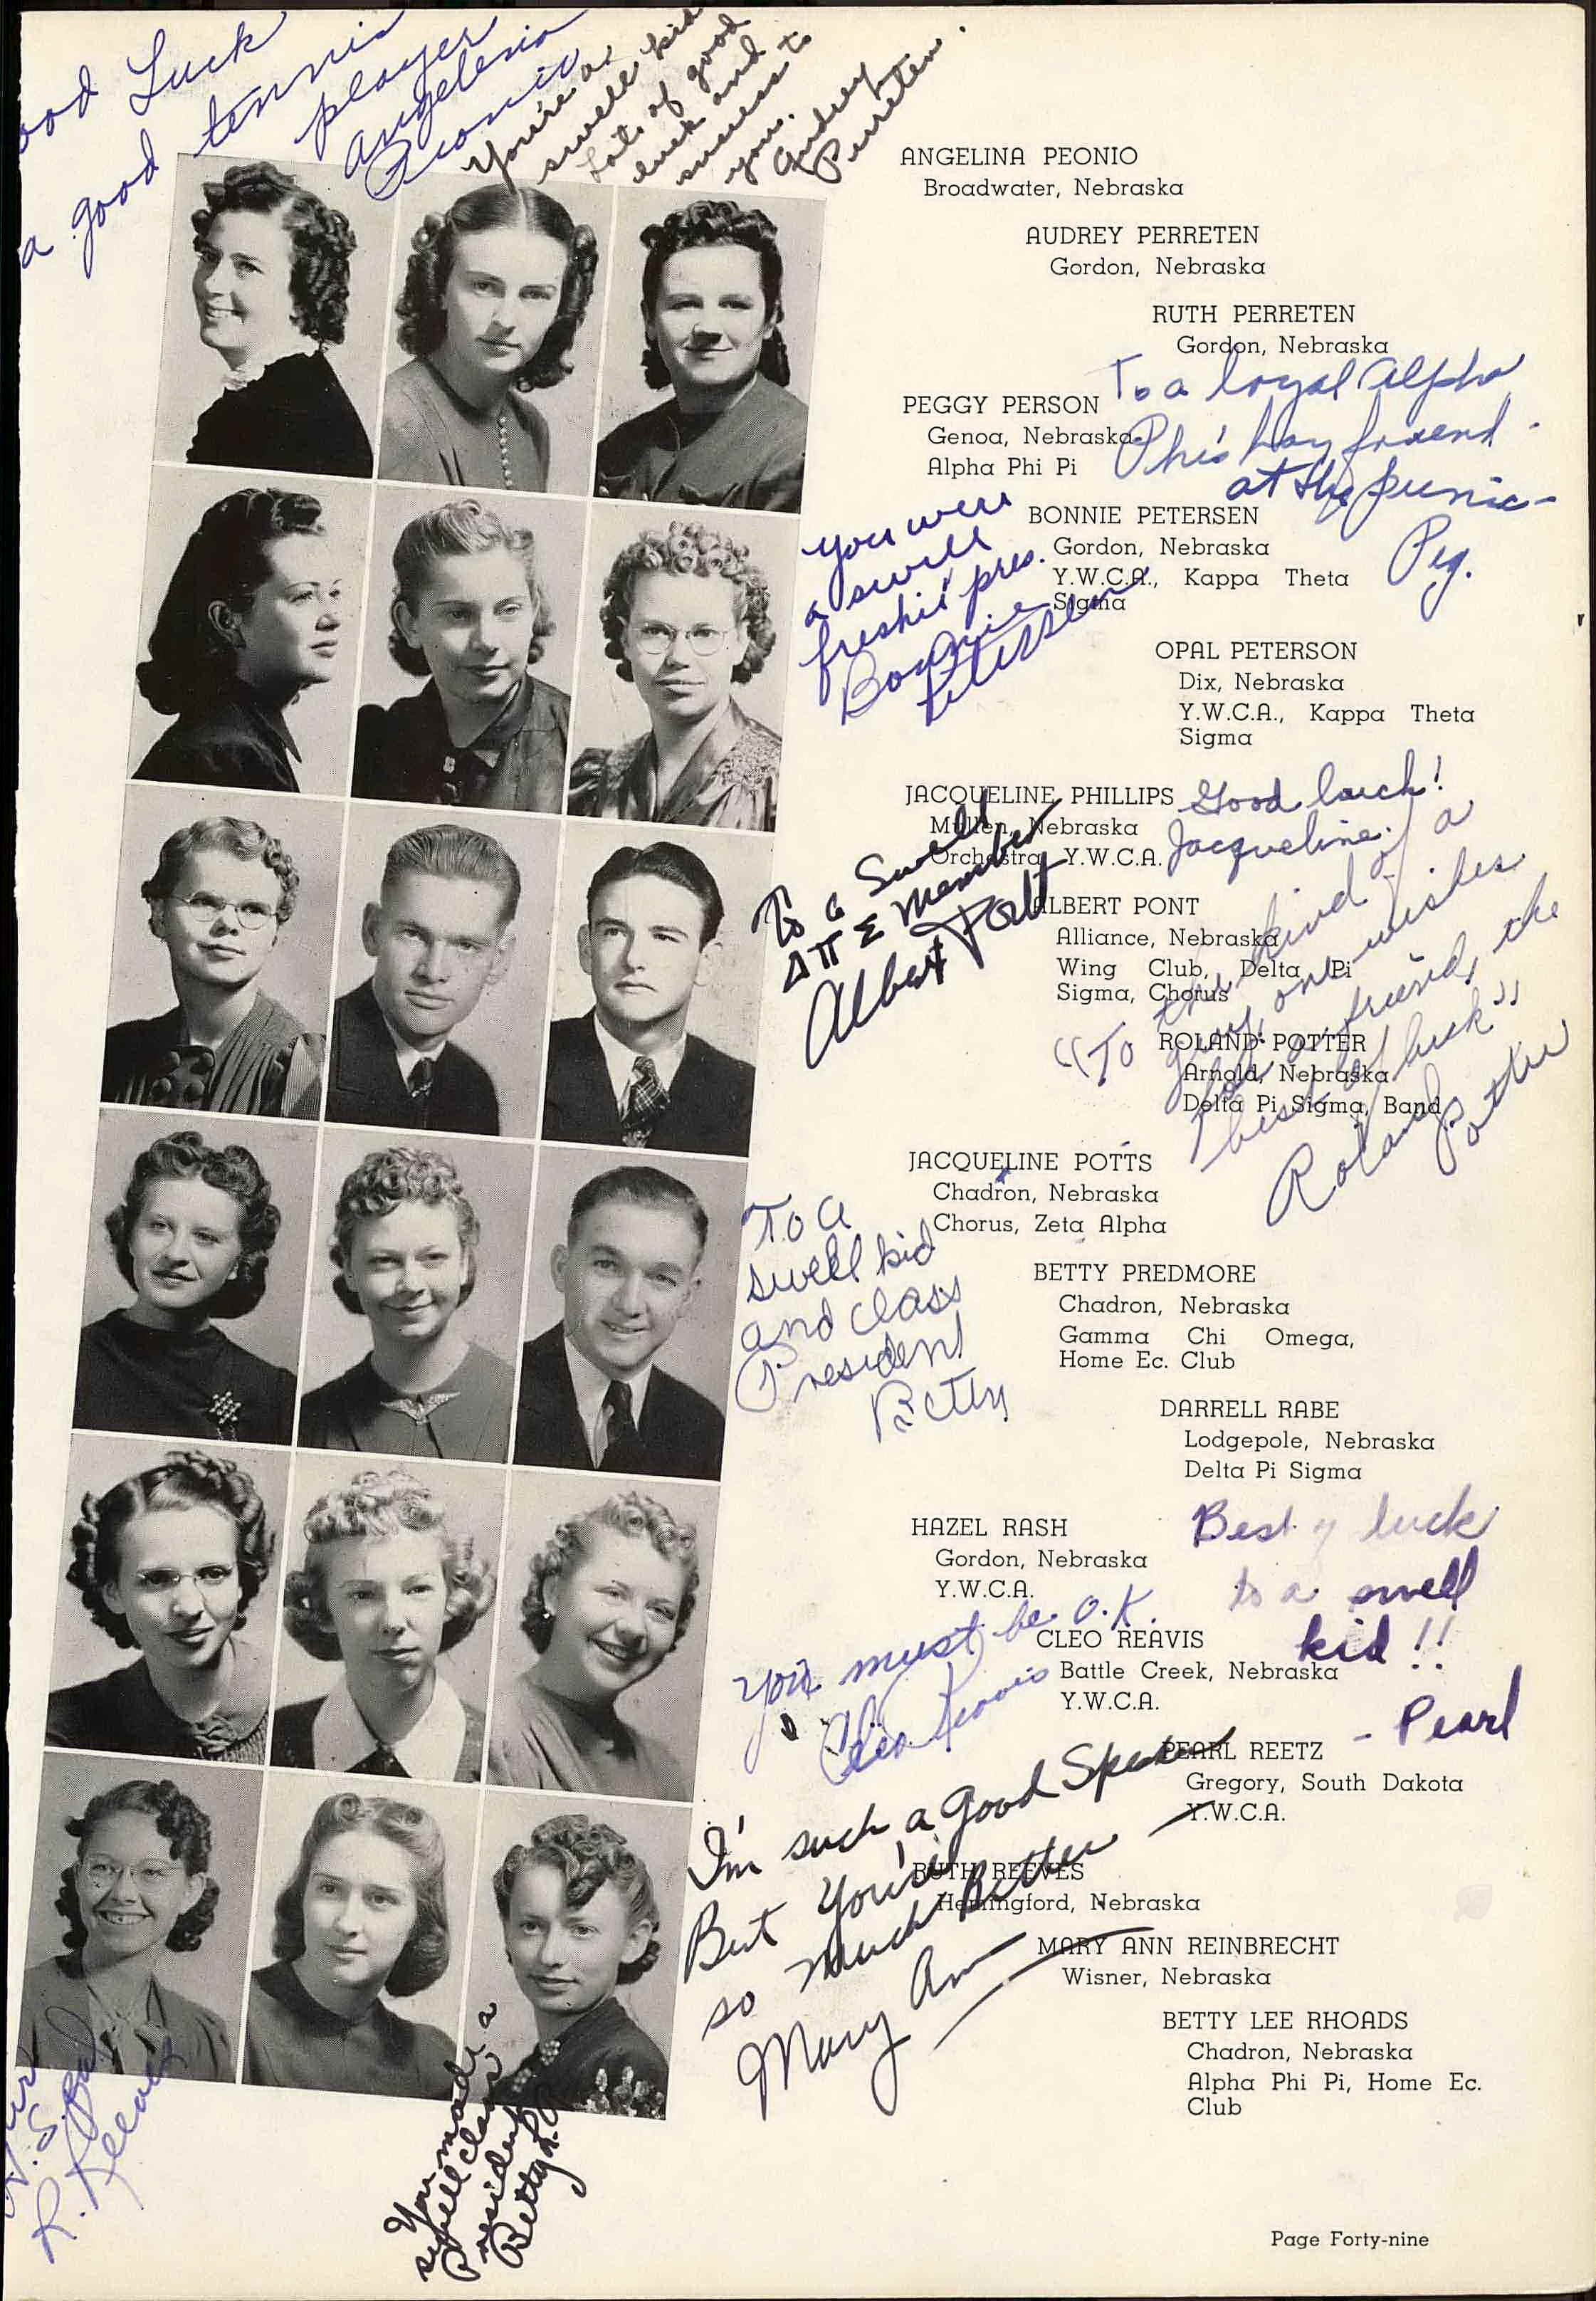 ood Luck
a good tennis
player
Angelena
Peonio
You're a
swell kid
Lots of good
luck and
success to
you.
Audrey
Perreten.
ANGELINA PEONIO
Broadwater, Nebraska
AUDREY PERRETEN
Gordon, Nebraska
RUTH PERRETEN
Gordon, Nebraska
PEGGY PERSON
Genoa, Nebraska
Alpha Phi Pi
To a loyal Alpha
Phi's boy friend
at the picnic-
Peg.
BONNIE PETERSEN
Gordon, Nebraska
Y.W.C.A., Kappa Theta
Sigma
You were
a swell
freshie pres.
Bonnie
Petersen
OPAL PETERSON
Dix, Nebraska
Y.W.C.A., Kappa Theta
Sigma
JACQUELINE PHILLIPS
Mullen, Nebraska
Orchestra, Y.W.C.A.
Good luck!
Jacqueline.
To a Swell
ΔΠΣ Member
Albert Pont
ALBERT PONT
Alliance, Nebraska
Wing Club, Delta Pi
Sigma, Chorus
"To the kind of a
guy one wishes
for a friend, the
best of luck"
Roland Potter
ROLAND POTTER
Arnold, Nebraska
Delta Pi Sigma, Band
JACQUELINE POTTS
Chadron, Nebraska
Chorus, Zeta Alpha
To a
swell kid
and class
President
Betty
BETTY PREDMORE
Chadron, Nebraska
Gamma Chi Omega,
Home Ec. Club
DARRELL RABE
Lodgepole, Nebraska
Delta Pi Sigma
HAZEL RASH
Gordon, Nebraska
Y.W.C.A.
Best of luck
to a swell
kid!!
- Pearl
You must be O.K.
Cleo Reavis
CLEO REAVIS
Battle Creek, Nebraska
Y.W.C.A.
PEARL REETZ
Gregory, South Dakota
Y.W.C.A.
I'm such a Good
But You're
so much Better
Mary Ann
RUTH REEVES
Hemingford, Nebraska
MARY ANN REINBRECHT
Wisner, Nebraska
BETTY LEE RHOADS
Chadron, Nebraska
Alpha Phi Pi, Home Ec.
Club
R. Reeves
You made a
swell class
President
Betty L.
Page Forty-nine